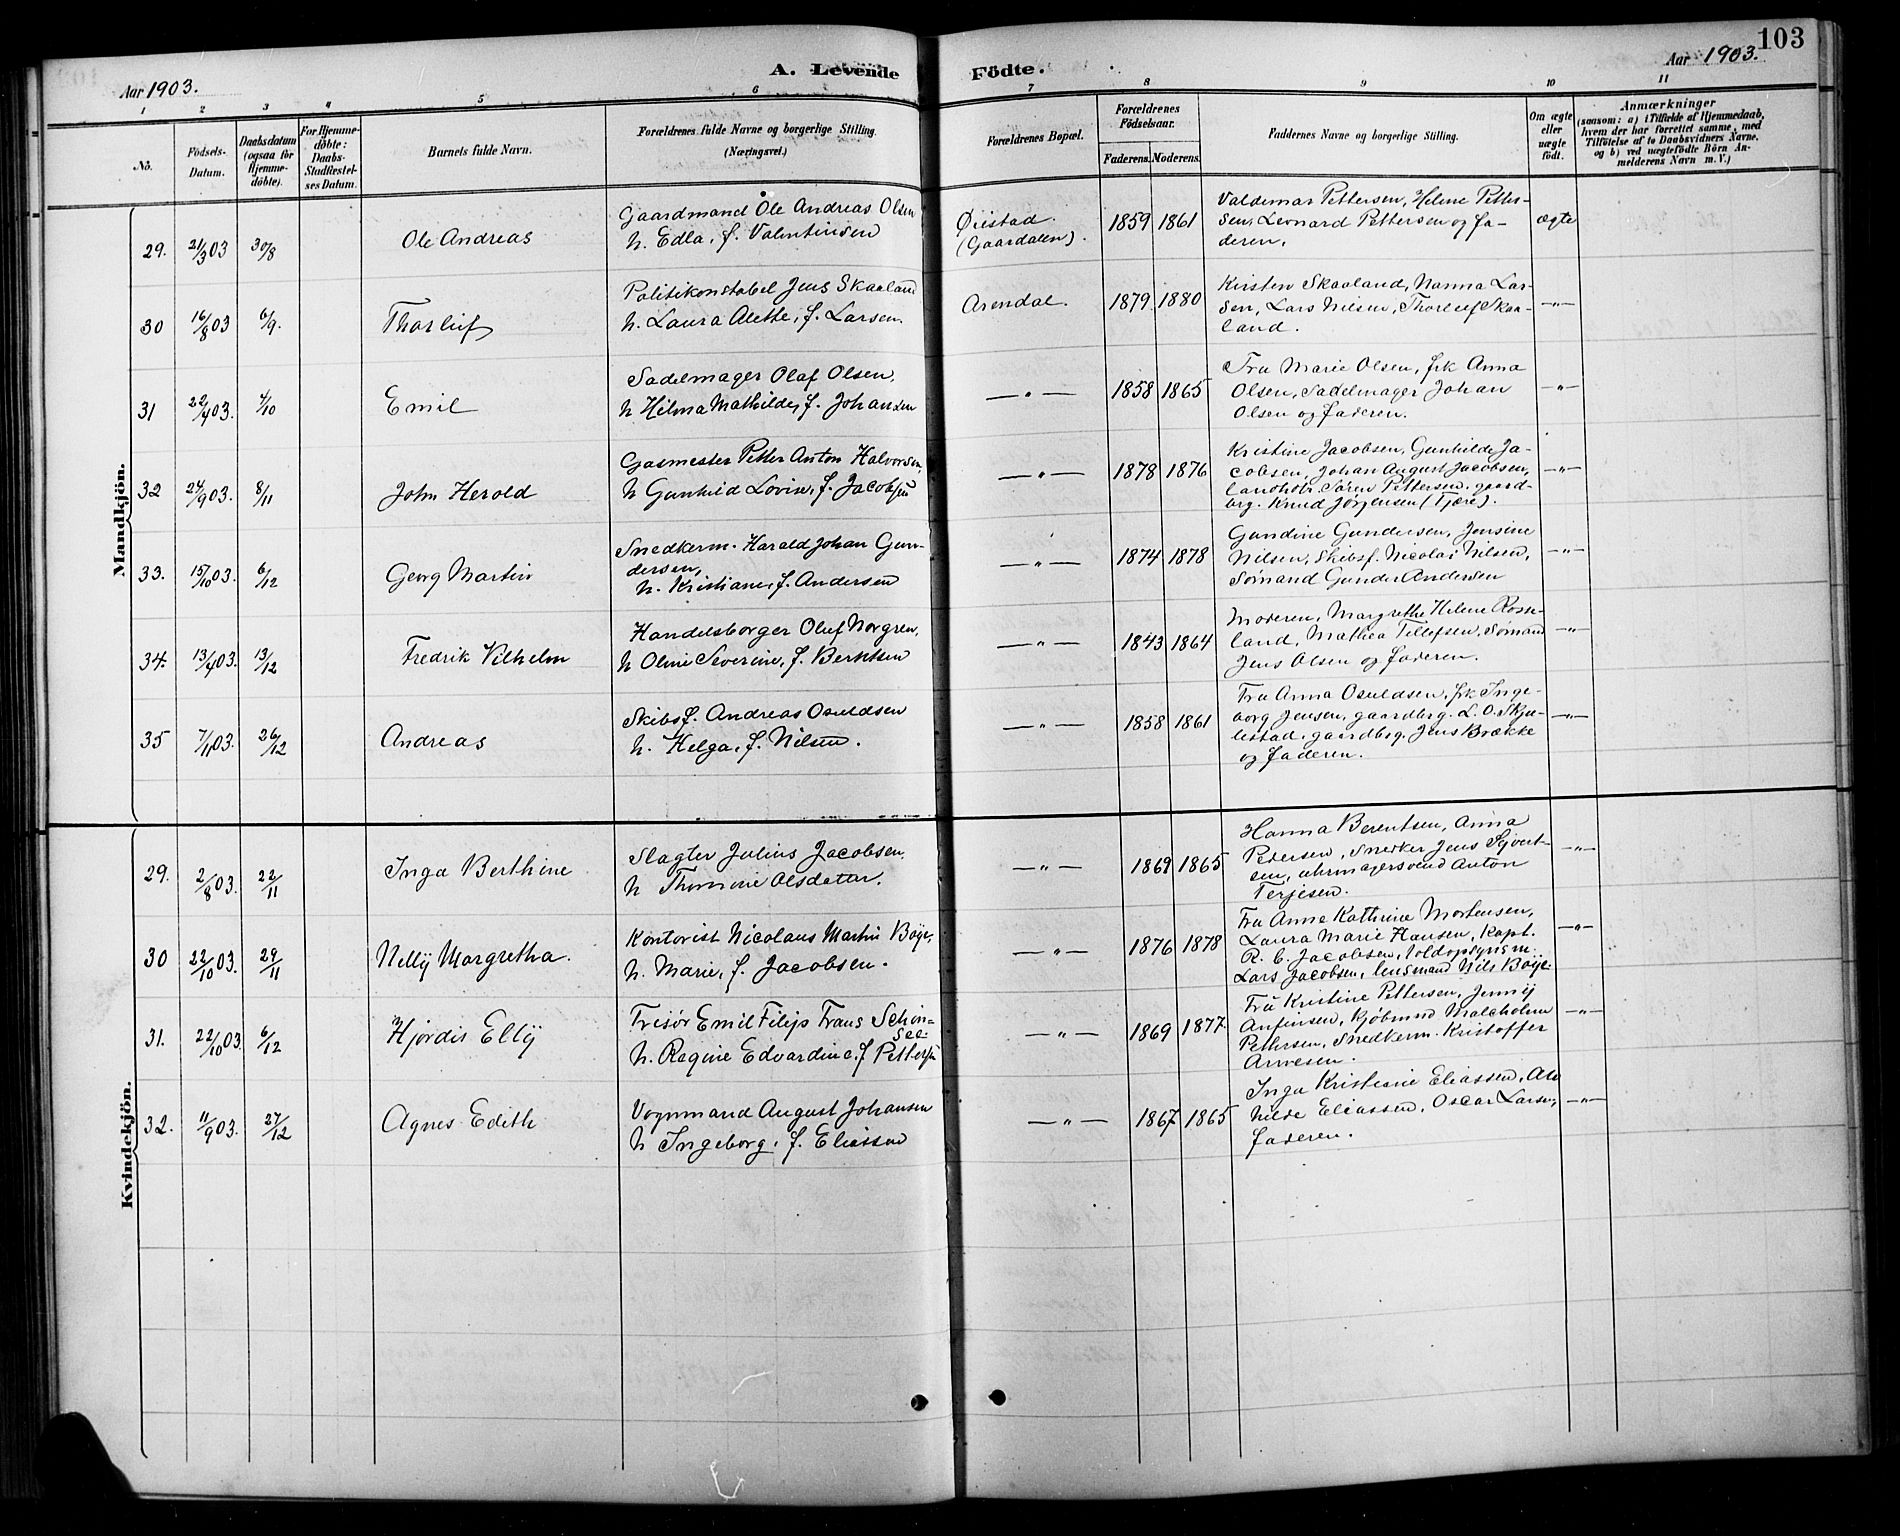 103
Aar 1903.
A. Levende Födte.
Aar 1903.
1 2 3 4 5 6 7 8 9 10 11
No.
Födsels-Datum.
Daabsdatum (ogsaa for Hjemme-döbte).
For Hjemme-döbte: Daabs-Stadfæstel-ses Datum.
Barnets fulde Navn.
Forældrenes fulde Navne og borgerlige Stilling. (Næringsvei.)
Forældrenes Bopæl.
Forældrenes Födselsaar.
Faderens. Moderens.
Faddernes Navne og borgerlige Stilling.
Om ægte eller uægte födt.
Anmærkninger
(saasom: a) i Tilfælde af Hjemmedaab, hvem der har forrettet samme, med Tilföielse af to Daabsvidners Navne. og b) ved uægtefödte Börn An-melderens Navn m. V.)
Mandkjön.
29. 21/3 03 30/8 Ole Andreas
Gaardmand Ole Andreas Olsen
h. Edla, f. Valentinsen
Øiestad (Gaardalen). 1859 1861
Valdemar Pettersen, Helene Petter-
sen, Leonard Pettersen og fa-
deren.
ægte
30 16/8 03 6/9. Thorleif
Politikonstabel Jens Skaaland
h. Laura Alette, f. Larsen.
Arendal. 1879. 1880
Kirsten Skaaland, Nanna Lar-
sen, Lars Nilsen, Thorleif Skaa-
land.
—„—
31 22/4 03. 4/10 Emil
Sadelmager Olaf Olsen,
h Hilma Mathilde, f. Johansen
—„— 1858 1865
Fru Marie Olsen, frk Anna
Olsen, Sadelmager Johan
Olsen og faderen.
—„—
32 24/9 03. 8/11 John Herold
Gasmester Petter Anton Halvorsen
h Gunhild Lovise, f. Jacobsen
—„— 1878 1876
Kristine Jacobsen, Gunhilde Ja-
cobsen, Johan August Jacobsen,
landhdr. Søren Pettersen, gaard-
brg. Knud Jørgensen (Tjære).
—„—
33. 15/10 03. 6/12 Georg Martin
Snedkerm. Harald Johan Gun-
dersen,
h. Kristiane, f. Andersen
—„— 1874 1878
Gundine Gundersen, Jensine
Nilsen, Skibsf. Nicolai Nilsen,
Sømand Gunder Andersen
—„—
34. 13/4 03. 13/12 Fredrik Vilhelm
Handelsborger Oluf Norgren,
h Oline Severine, f. Berntsen
—„— 1843 1864
Moderen, Margrethe Helene Rosse-
land, Mathea Tellefsen, Sømand
Jens Olsen og faderen.
—„—
35 7/11 03. 26/12 Andreas
Skibsf. Andreas Osuldsen
h. Helga, f. Nilsen.
—„— 1858 1861
Fru Anna Osuldsen, frk Inge-
borg Jensen, gaardbrg. L. O. Skju-
lestad, gaardbrg. Jens Brække
og faderen.
—„—
Kvindekjön.
29. 2/8 03. 22/11 Inga Berthine
Slagter Julius Jacobsen,
h Thomine Olsdatter.
—„— 1869 1865
Hanna Berentsen, Anna
Pedersen, Snedker Jens Sjvert-
sen, uhrmagersvend Anton
Terjesen.
—„—
30 22/10 03. 29/11 Nelly Margretha.
Kontorist Nicolaus Martin Bøye,
h. Marie, f. Jacobsen.
—„— 1876 1878
Fru Anne Kathrine Mortensen,
Laura Marie Hansen, Kapt.
R. C. Jacobsen, toldopsynsm.
Lars Jacobsen, lensmand Nils Bøye.
—„—
31. 22/10 03. 6/12 Hjørdis Elly
Frisør Emil Filip Frans Schin-
see.
h. Ragine Edvardine, f Pettersen
—„— 1869 1877.
Fru Kristine Pettersen, Jenny
Anfinsen, Kjøbmnd Malcholm
Pettersen, Snedkerm. Kristoffer
Arnesen.
—„—
32. 11/9 03. 27/12 Agnes Edith
Vognmand August Johansen
h Ingeborg, f. Eliassen
—„— 1867 1865
Inga Kristiane Eliassen, Al-
hilde Eliassen, Oscar Larsen,
faderen.
—„—